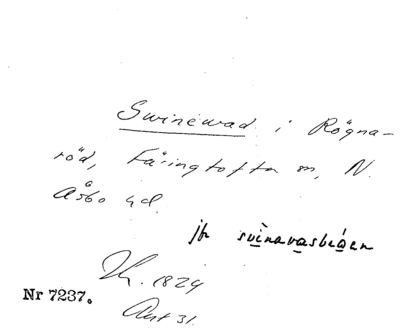 Swinewad i Rögna-
röd, Färingtofta sn, N.
Åsbo hd.
jfr svinavasbägen
1829
Nr 7237.
Akt 31.